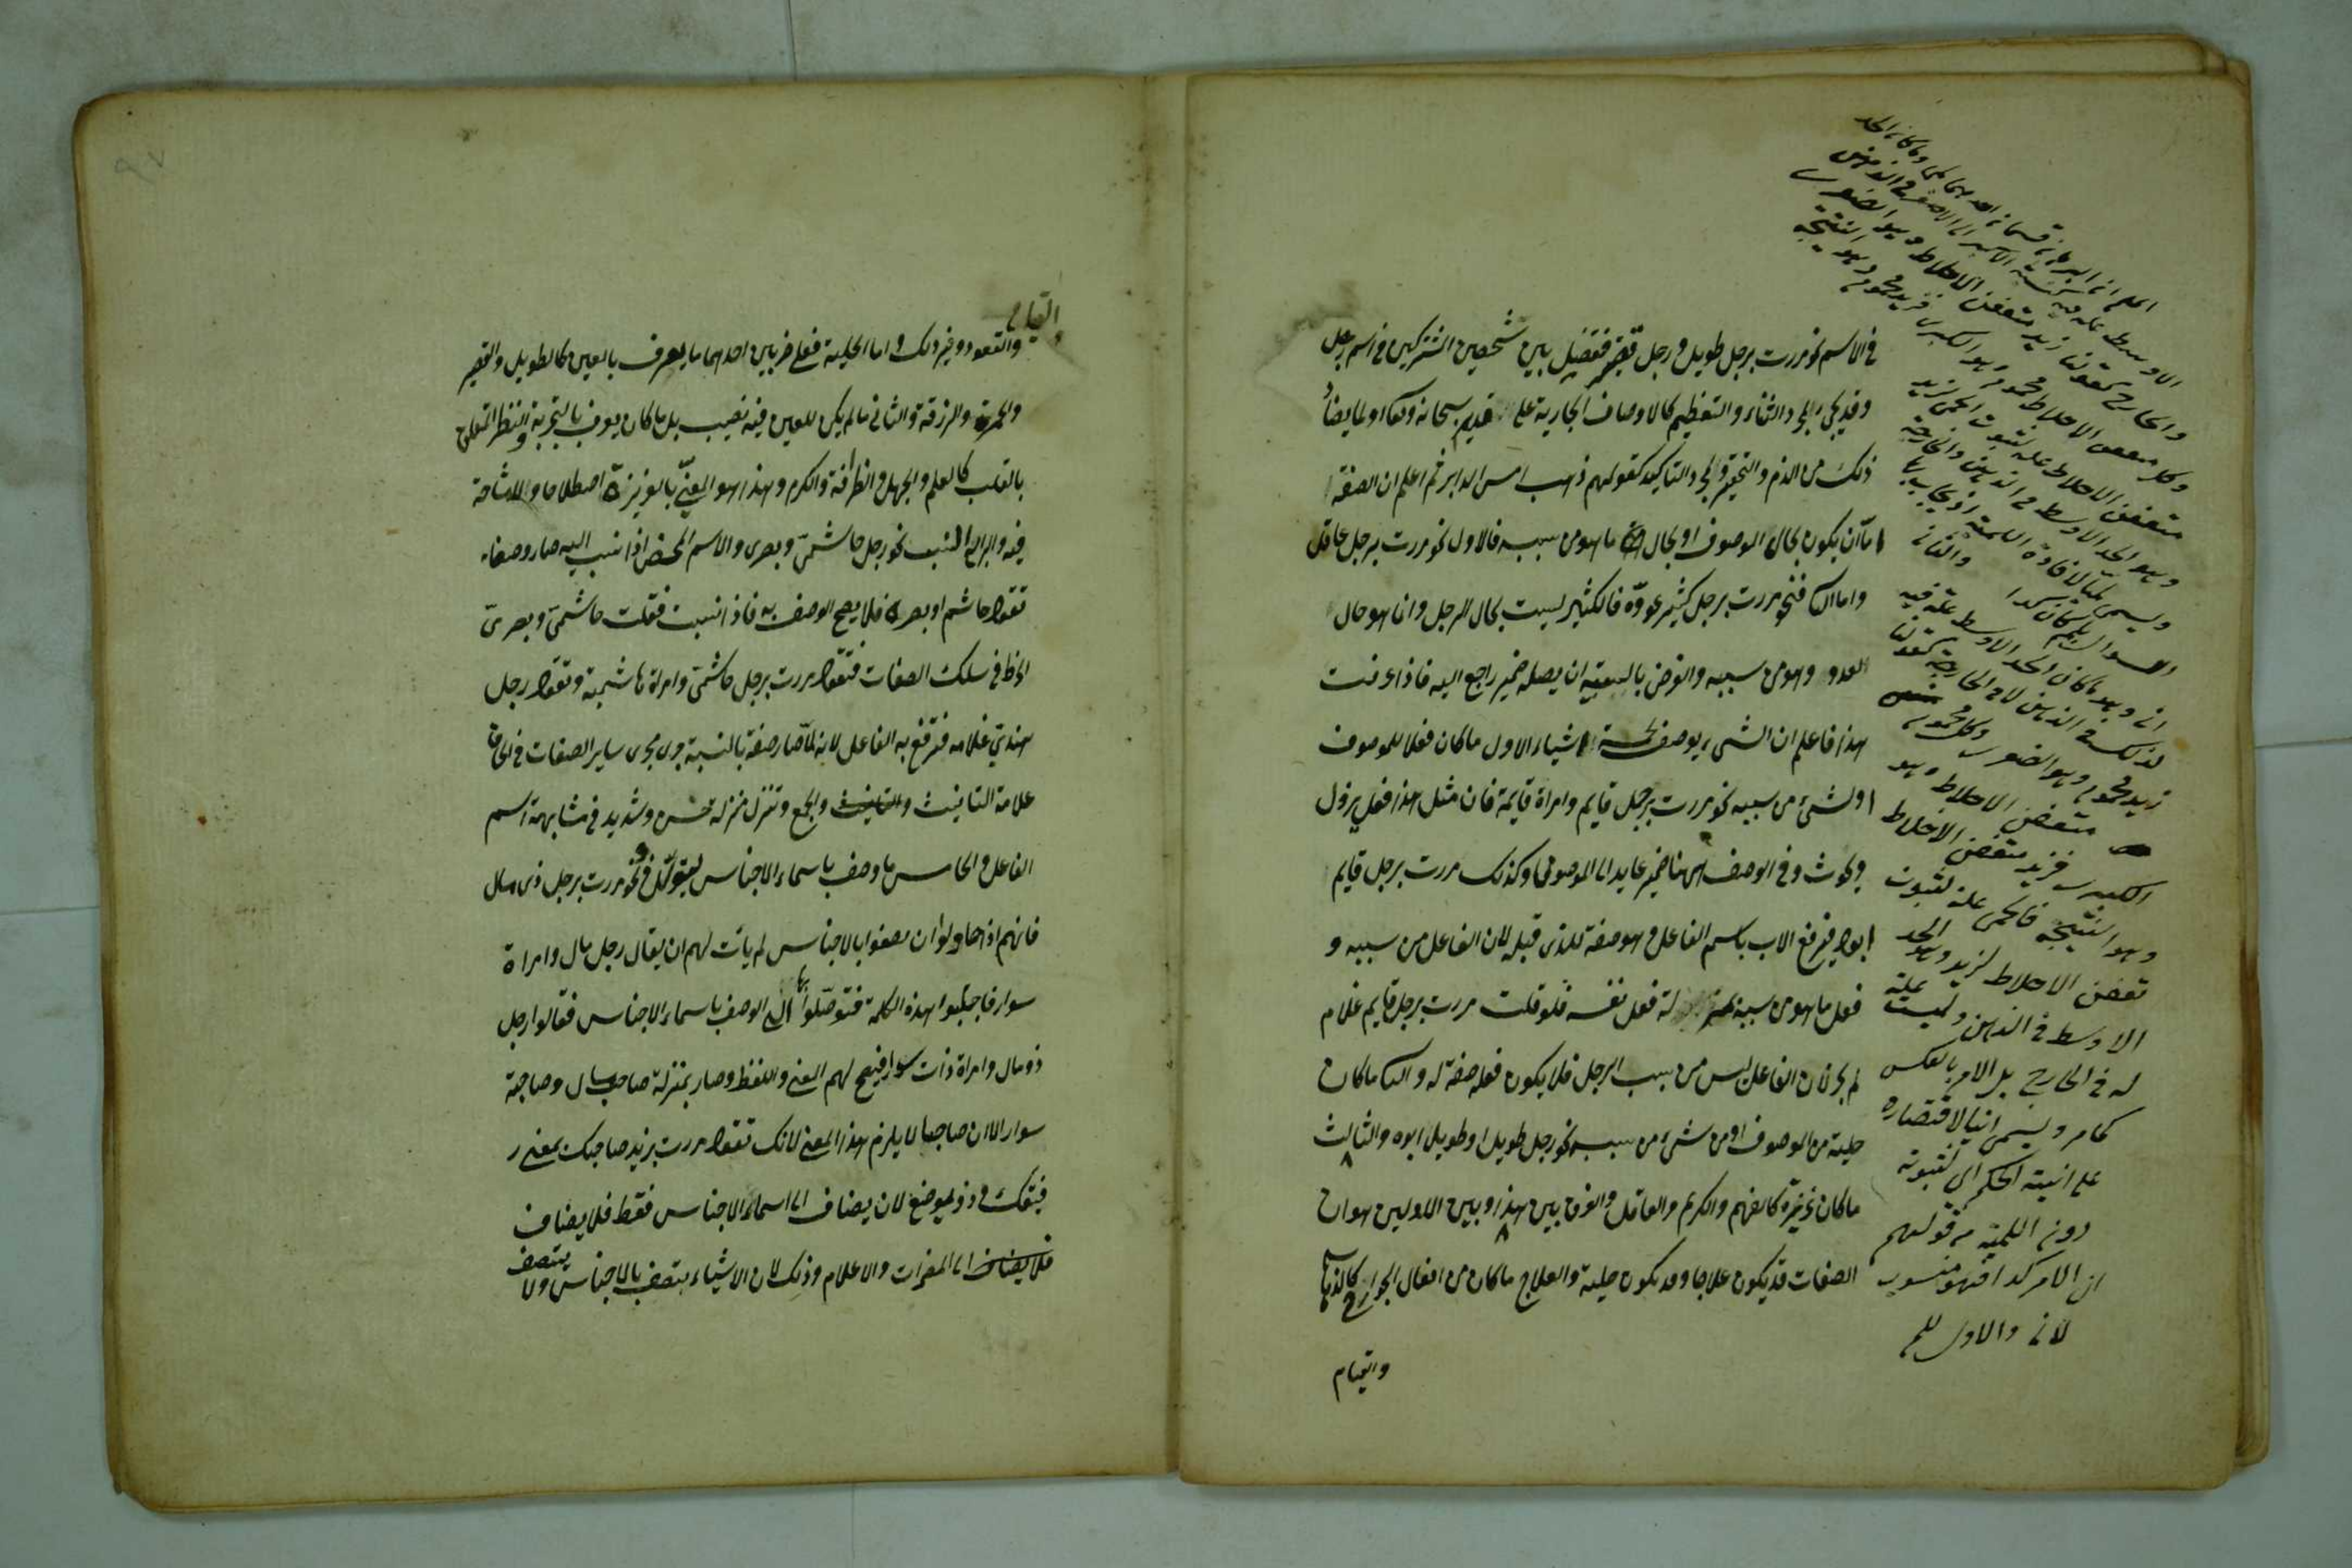 في الاسم نحو مررت برجل طويل ورجل قصير فتفصل بين شخصين اشتركين في اسم رجل
وقد يجيء لمجرد الثناء والتعظيم كالاوصاف الجارية على القديم سبحانه وتعالى او لما يضاد
ذلك من الذم والتحقير ولمجرد التاكيد كقولهم ذهب امس الدابر ثم اعلم ان الصفة
اما ان يكون بحال الموصوف او بحال ما هو من سببه فالاول نحو مررت برجل عاقل
واما الثاني فنحو مررت برجل كثير عدوّه فالكثير ليست بحال الرجل وانما هو حال
العدو وهو من سببه والغرض بالسببية ان يصله ضمير راجع اليه فاذا عرفت
هذا فاعلم ان الشيء يوصف بخمسة اشياء الاول ما كان فعلا للموصوف
او لشيء من سببه نحو مررت برجل قايم وامراة قايمة فان مثل هذا فعل يزول
ويحدث وفي الوصف ههنا ضمير عايد الى الموصوف وكذلك مررت برجل قايم
ابوه فيرفع الاب باسم الفاعل وهو صفة للذي قبله لان الفاعل من سببه و
فعل ما هو من سببه بمنزلة فعل نفسه فلو قلت مررت برجل قايم غلام
لم يجز لان الفاعل ليس من سبب الرجل فلا يكون فعله صفة له والثاني ما كان
حلية من الموصوف او من شيء من سببه نحو رجل طويل او طويل ابوه والثالث
ما كان غريزة كالفهم والكريم والعاقل والفرق بين هذا وبين الاولين هو ان
الصفات قد يكون علاجا وقد تكون حلية والعلاج ما كان من افعال الجوارح كالذهاب
والقيام
اعلم ان البرهان قسمان احدهما لمي وما كان الحد
الاوسط علة في نسبة الاكبر الى الاصغر في الذهن
والخارج كقولنا زيد متعفن الاخلاط وهو الصغرى
وكل متعفن الاخلاط محموم وهو الكبرى فزيد محموم وهو النتيجة
متعفن الاخلاط علة لثبوت الحمى لزيد
وهو الحد الاوسط في الذهن والخارج
ويسمى لميا لافادة اللمية اذ يجاب بها
السؤال بلم كان كذا والثاني
اني وهو ما كان الحد الاوسط علة فيه
لذلك في الذهن لا في الخارج كقولنا
زيد محموم وهو الصغرى وكل محموم
متعفن الاخلاط وهو
الكبرى فزيد متعفن الاخلاط
وهو النتيجة فالحمى علة لثبوت
تعفن الاخلاط لزيد وهو الحد
الاوسط في الذهن وليست علة
له في الخارج بل الامر بالعكس
كما مر ويسمى انيا لاقتصاره
على انية الحكم اي ثبوته
دون اللمية من قولهم
ان الامر كذا فهو منسوب
لان والاول للم
والقيام
والقعود وغير ذلك واما الحلية فعلى ضربين احدهما ما يعرف بالعين كالطويل والقصير
والحمرة والزرقة والثاني ما لم يكن للعين فيه نصيب بل ما كان يعرف بالتجربة والنظر المتعلق
بالقلب كالعلم والجهل والظرافة والكرم وهذا هو المعنيّ بالغريزة اصطلاحا ولا مشاحة
فيه والرابع النسب نحو رجل هاشميّ وبصري والاسم المحض اذا نسب اليه صار وصفا
تقول هاشم او بصرة فلا يصح الوصف به فاذا نسبت فقلت هاشميّ وبصريّ
انخرط في سلك الصفات فتقول مررت برجل هاشمي وامراة هاشمية وتقول رجل
هنديّ غلامه فترفع به الفاعل لانه لمّا صار صفة بالنسبة جرى مجرى ساير الصفات في الحاق
علامة التانيث والتانيث والجمع وتنزل منزلة حسن وشديد في مشابهة اسم
الفاعل والخامس ما وصف باسماء الاجناس نحو مررت برجل ذي مال
فانهم اذا حاولوا ان يصفوا بالاجناس لم يأت لهم ان يقال رجل مال وامراة
سوار فاجتلبوا هذه الكلمة فتوصّلوا بها الى الوصف باسماء الاجناس فقالوا رجل
ذو مال وامراة ذات سوار فيصح لهم المعنى واللفظ وصار بمنزلة صاحب مال وصاحبة
سوار الا ان صاحبا لا يلزم هذا المعنى لانك تقول مررت بزيد صاحبك بمعنى ر
فيقك وذو لموضع لان يضاف الى اسماء الاجناس فقط فلا يضاف
فلا يضاف الى المضمرات والاعلام وذلك لان الاشياء يتصف بالاجناس ولا
يتصف